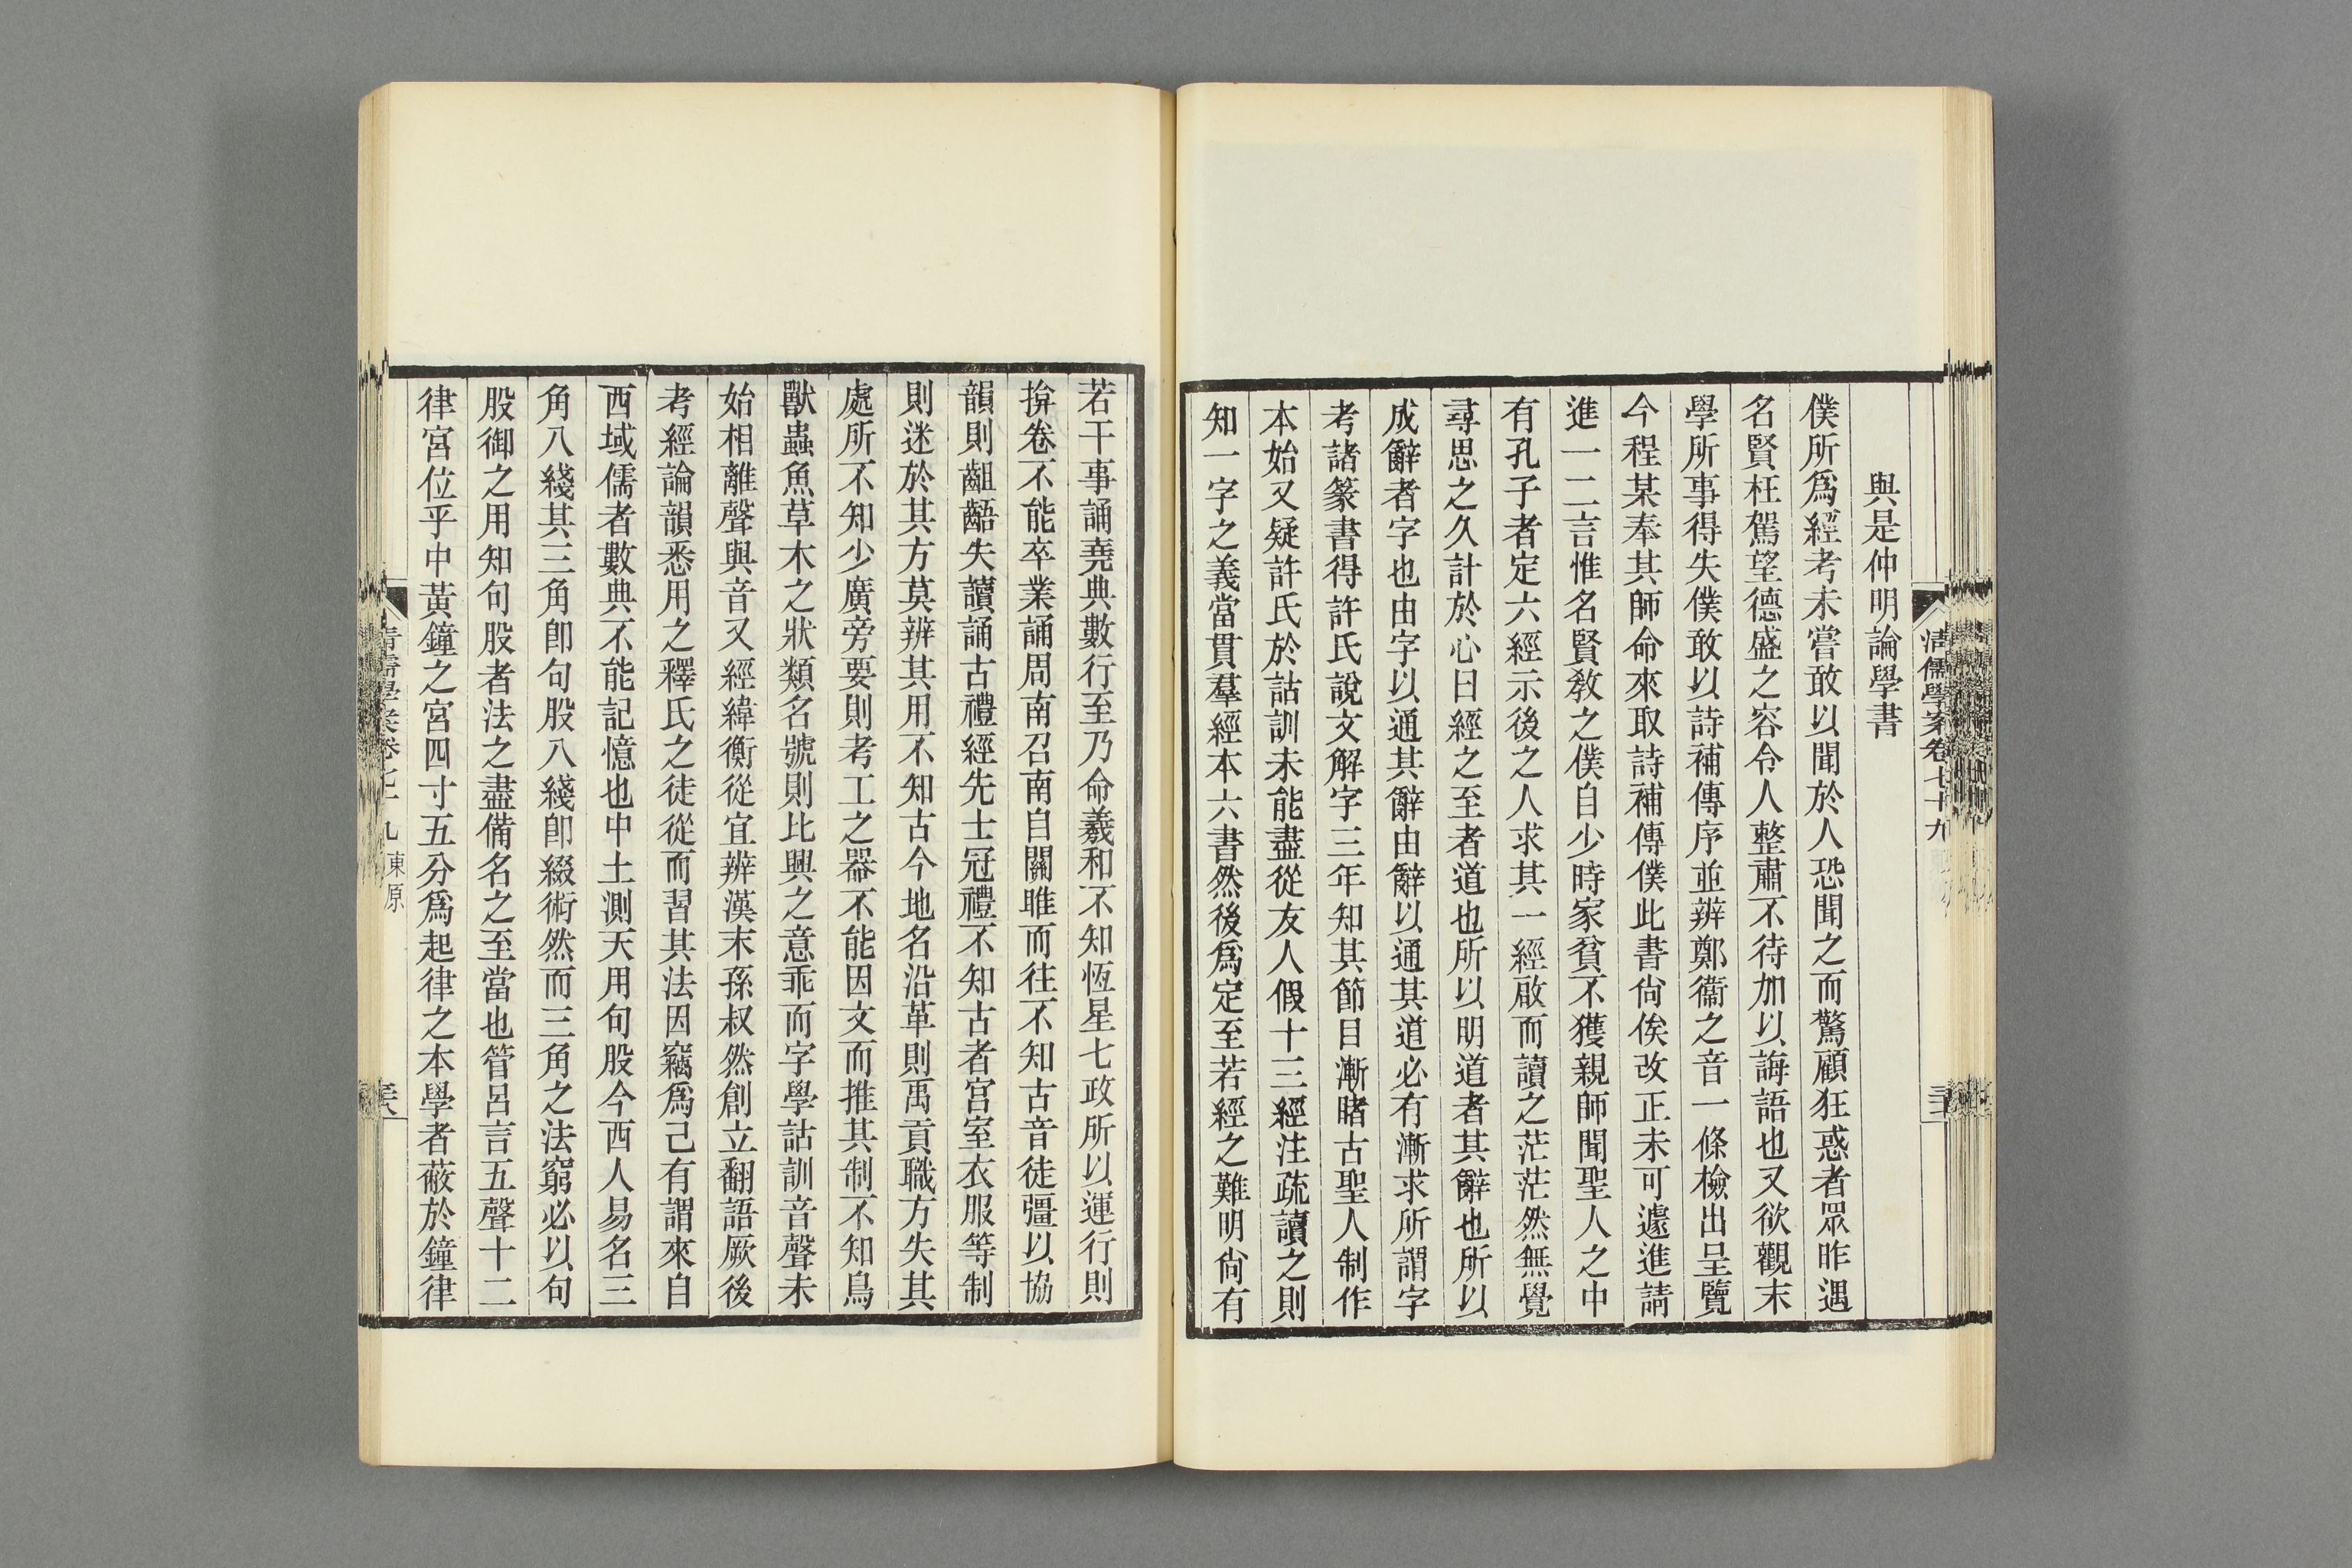 清儒學案卷七十九
與是仲明論學書
僕所爲經考未嘗敢以聞於人恐聞之而驚顧狂惑者眾昨遇
名賢枉駕望德盛之容令人整肅不待加以誨語也又欲觀末
學所事得失僕敢以詩補傳序並辨鄭衞之音一條檢出呈覽
今程某奉其師命來取詩補傳僕此書尙俟改正未可遽進請
進一二言惟名賢敎之僕自少時家貧不獲親師聞聖人之中
有孔子者定六經示後之人求其一經啟而讀之茫茫然無覺
尋思之久計於心曰經之至者道也所以明道者其辭也所以
成辭者字也由字以通其辭由辭以通其道必有漸求所謂字
考諸篆書得許氏說文解字三年知其節目漸睹古聖人制作
本始又疑許氏於詁訓未能盡從友人假十三經注疏讀之則
知一字之義當貫羣經本六書然後爲定至若經之難明尙有
若干事誦堯典數行至乃命羲和不知恆星七政所以運行則
掩卷不能卒業誦周南召南自關雎而往不知古音徒彊以協
韻則齟齬失讀誦古禮經先士冠禮不知古者宮室衣服等制
則迷於其方莫辨其用不知古今地名沿革則禹貢職方失其
處所不知少廣旁要則考工之器不能因文而推其制不知鳥
獸蟲魚草木之狀類名號則比興之意乖而字學詁訓音聲未
始相離聲與音又經緯衡從宜辨漢末孫叔然創立翻語厥後
考經論韻悉用之釋氏之徒從而習其法因竊爲己有謂來自
西域儒者數典不能記憶也中土測天用句股今西人易名三
角八綫其三角卽句股八綫卽綴術然而三角之法窮必以句
股御之用知句股者法之盡備名之至當也管呂言五聲十二
律宮位乎中黃鐘之宮四寸五分爲起律之本學者蔽於鐘律
東原